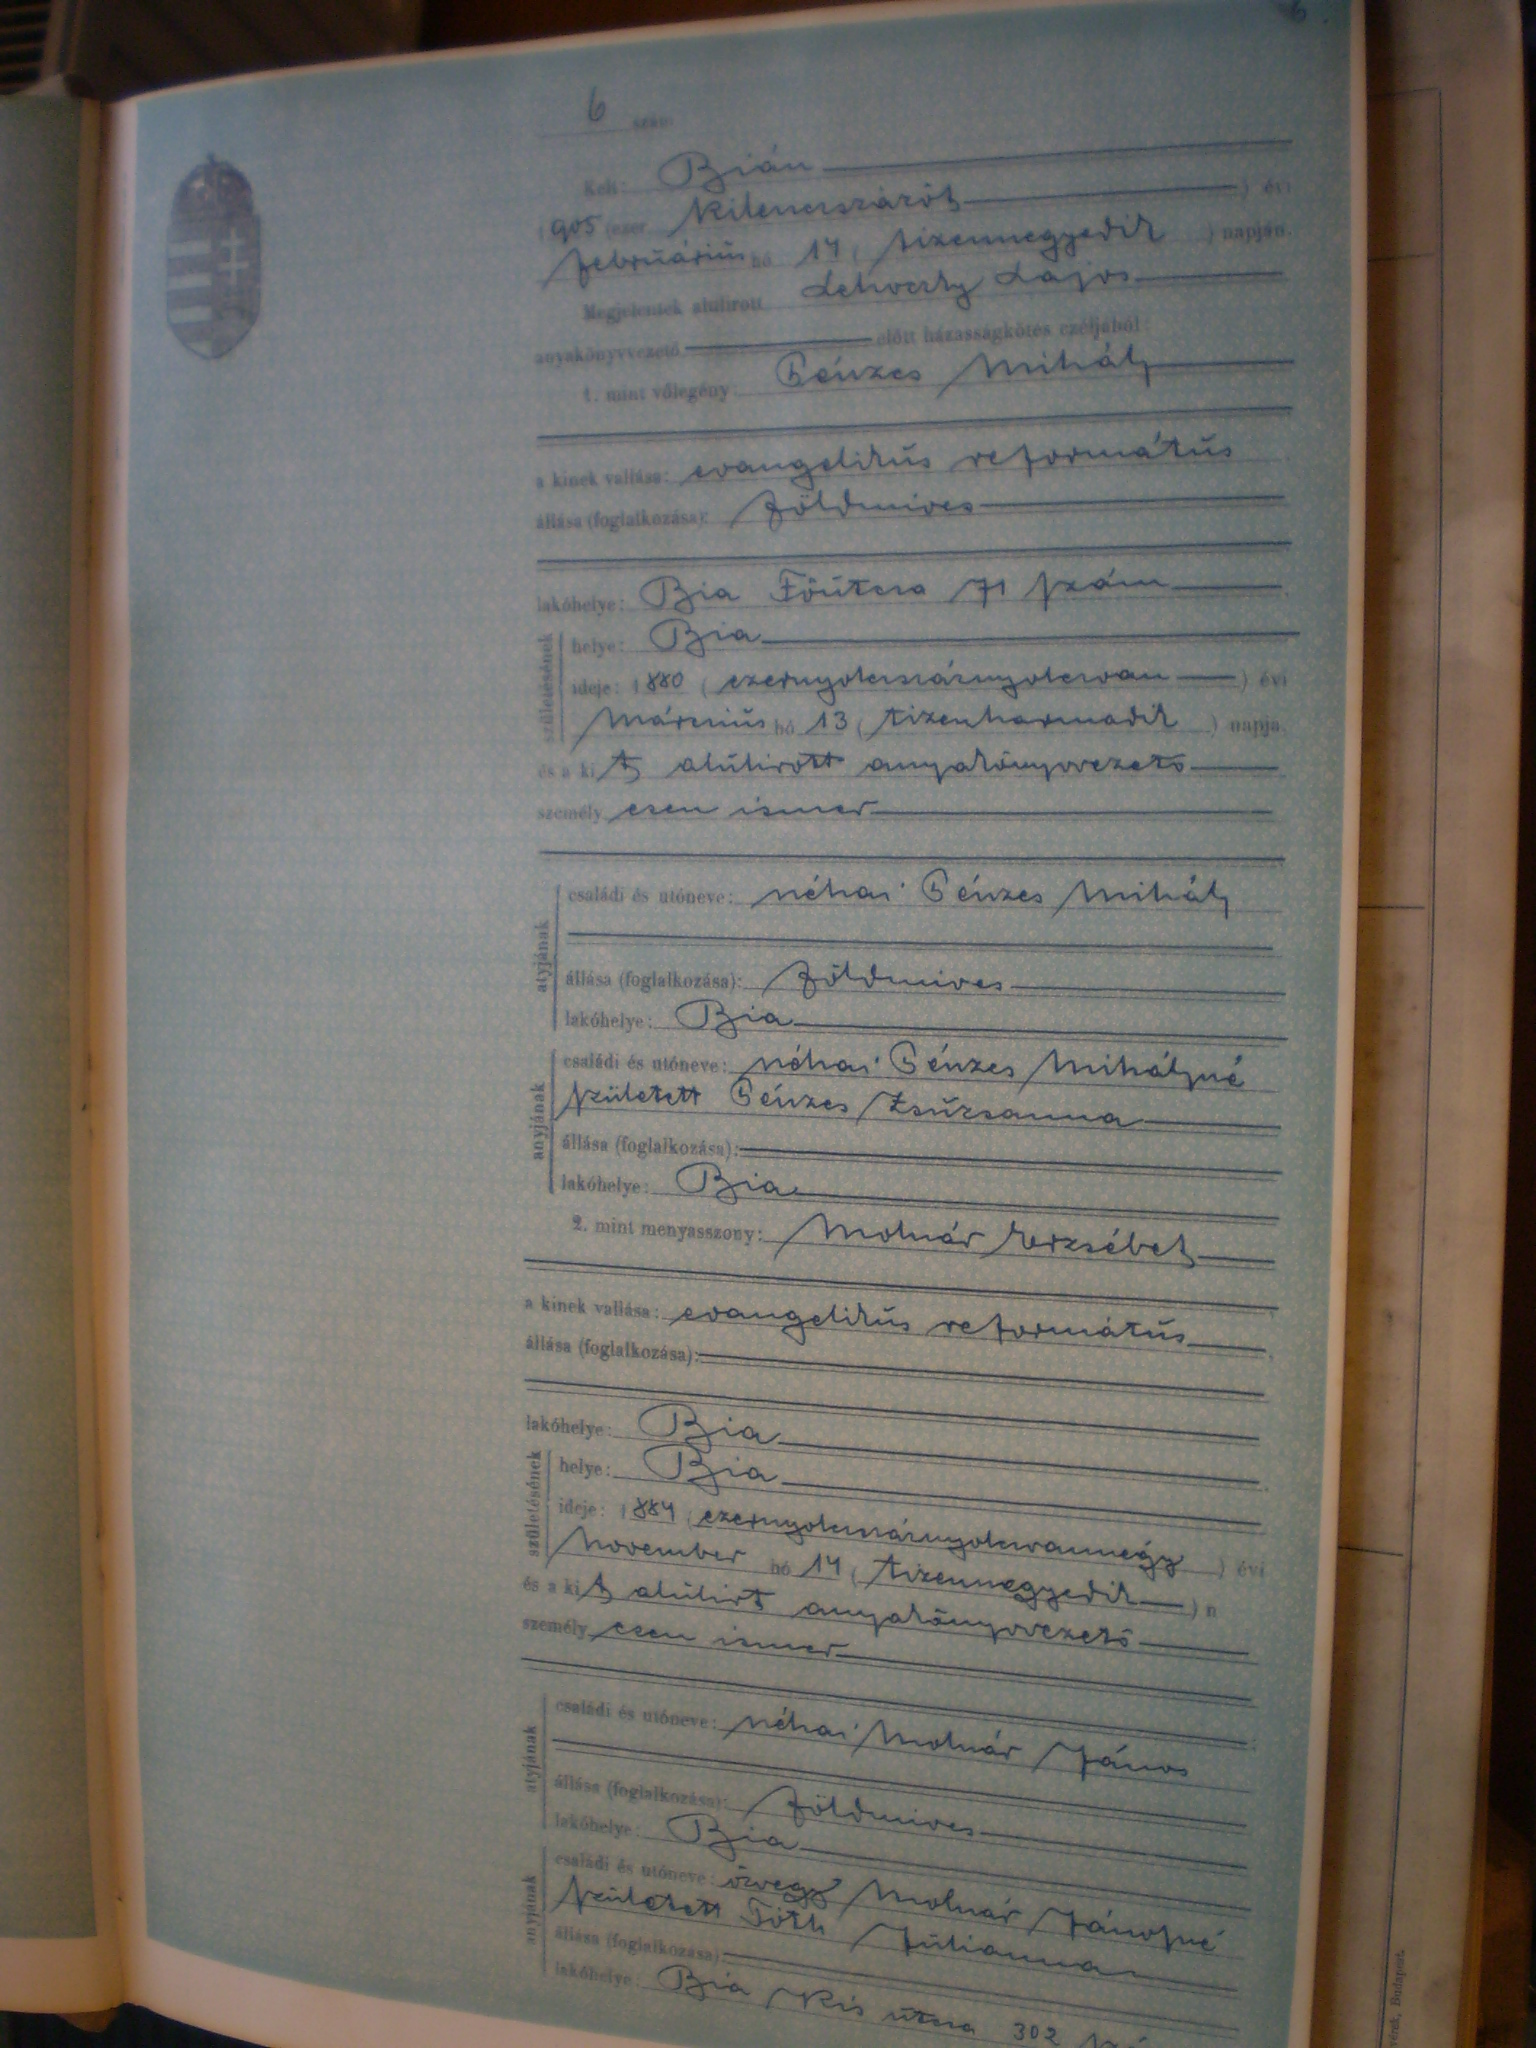 6
6 szám
Kelt: Bián
1905 (ezer kilencszázöt) évi
februárius hó 14 (tizennegyedik) napján.
Megjelentek alulírott Lehoczky Lajos
anyakönyvvezető előtt házasságkötés czéljából:
1. mint vőlegény Pénzes Mihály
a kinek vallása: evangelikús református
állása (foglalkozása): földmíves
lakóhelye: Bia Főútcza 71 szám
születésének
helye: Bia
ideje: 1880 (ezernyolcszáznyolcvan) évi
márczius hó 13 (tizenharmadik) napja.
és a kit alúlirott anyakönyvvezető
személyesen ismer
atyjának
családi és utóneve: néhai Pénzes Mihály
állása (foglalkozása): földmíves
lakóhelye: Bia
anyjának
családi és utóneve: néhai Pénzes Mihályné
született Pénzes Zsúzsanna
állása (foglalkozása):
lakóhelye: Bia
2. mint menyasszony: Molnár Erzsébet
a kinek vallása: evangelikús református
állása (foglalkozása):
lakóhelye: Bia
születésének
helye: Bia
ideje: 1884 (ezernyolcszáznyolcvannégy) évi
november hó 14 (tizennegyedik) n
és a kit alúlirt anyakönyvvezető
személyesen ismer
atyjának
családi és utóneve: néhai Molnár János
állása (foglalkozása): földmíves
lakóhelye: Bia
anyjának
családi és utóneve: özvegy Molnár Jánosné
született Tóth Júlianna
állása (foglalkozása)
lakóhelye: Bia Kis útcza 302
Budapest.